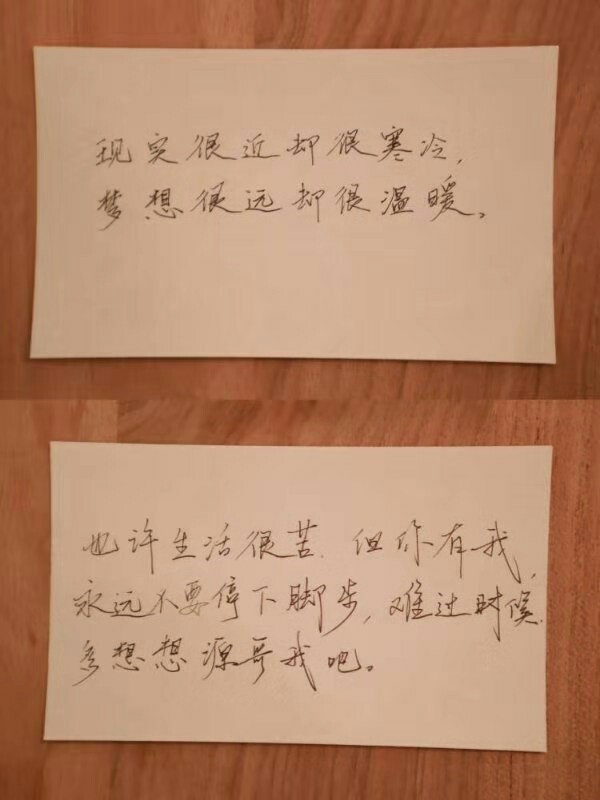 现实很近却很寒冷,
梦想很远却很温暖。
也许生活很苦.但你有我,
永远不要停下脚步,难过时候,
多想想源哥我吧。